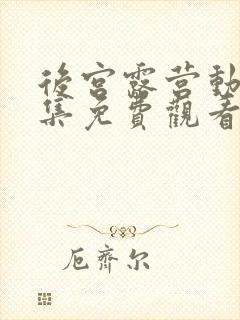 後宮露营動
集免費觀看
厄齊尔